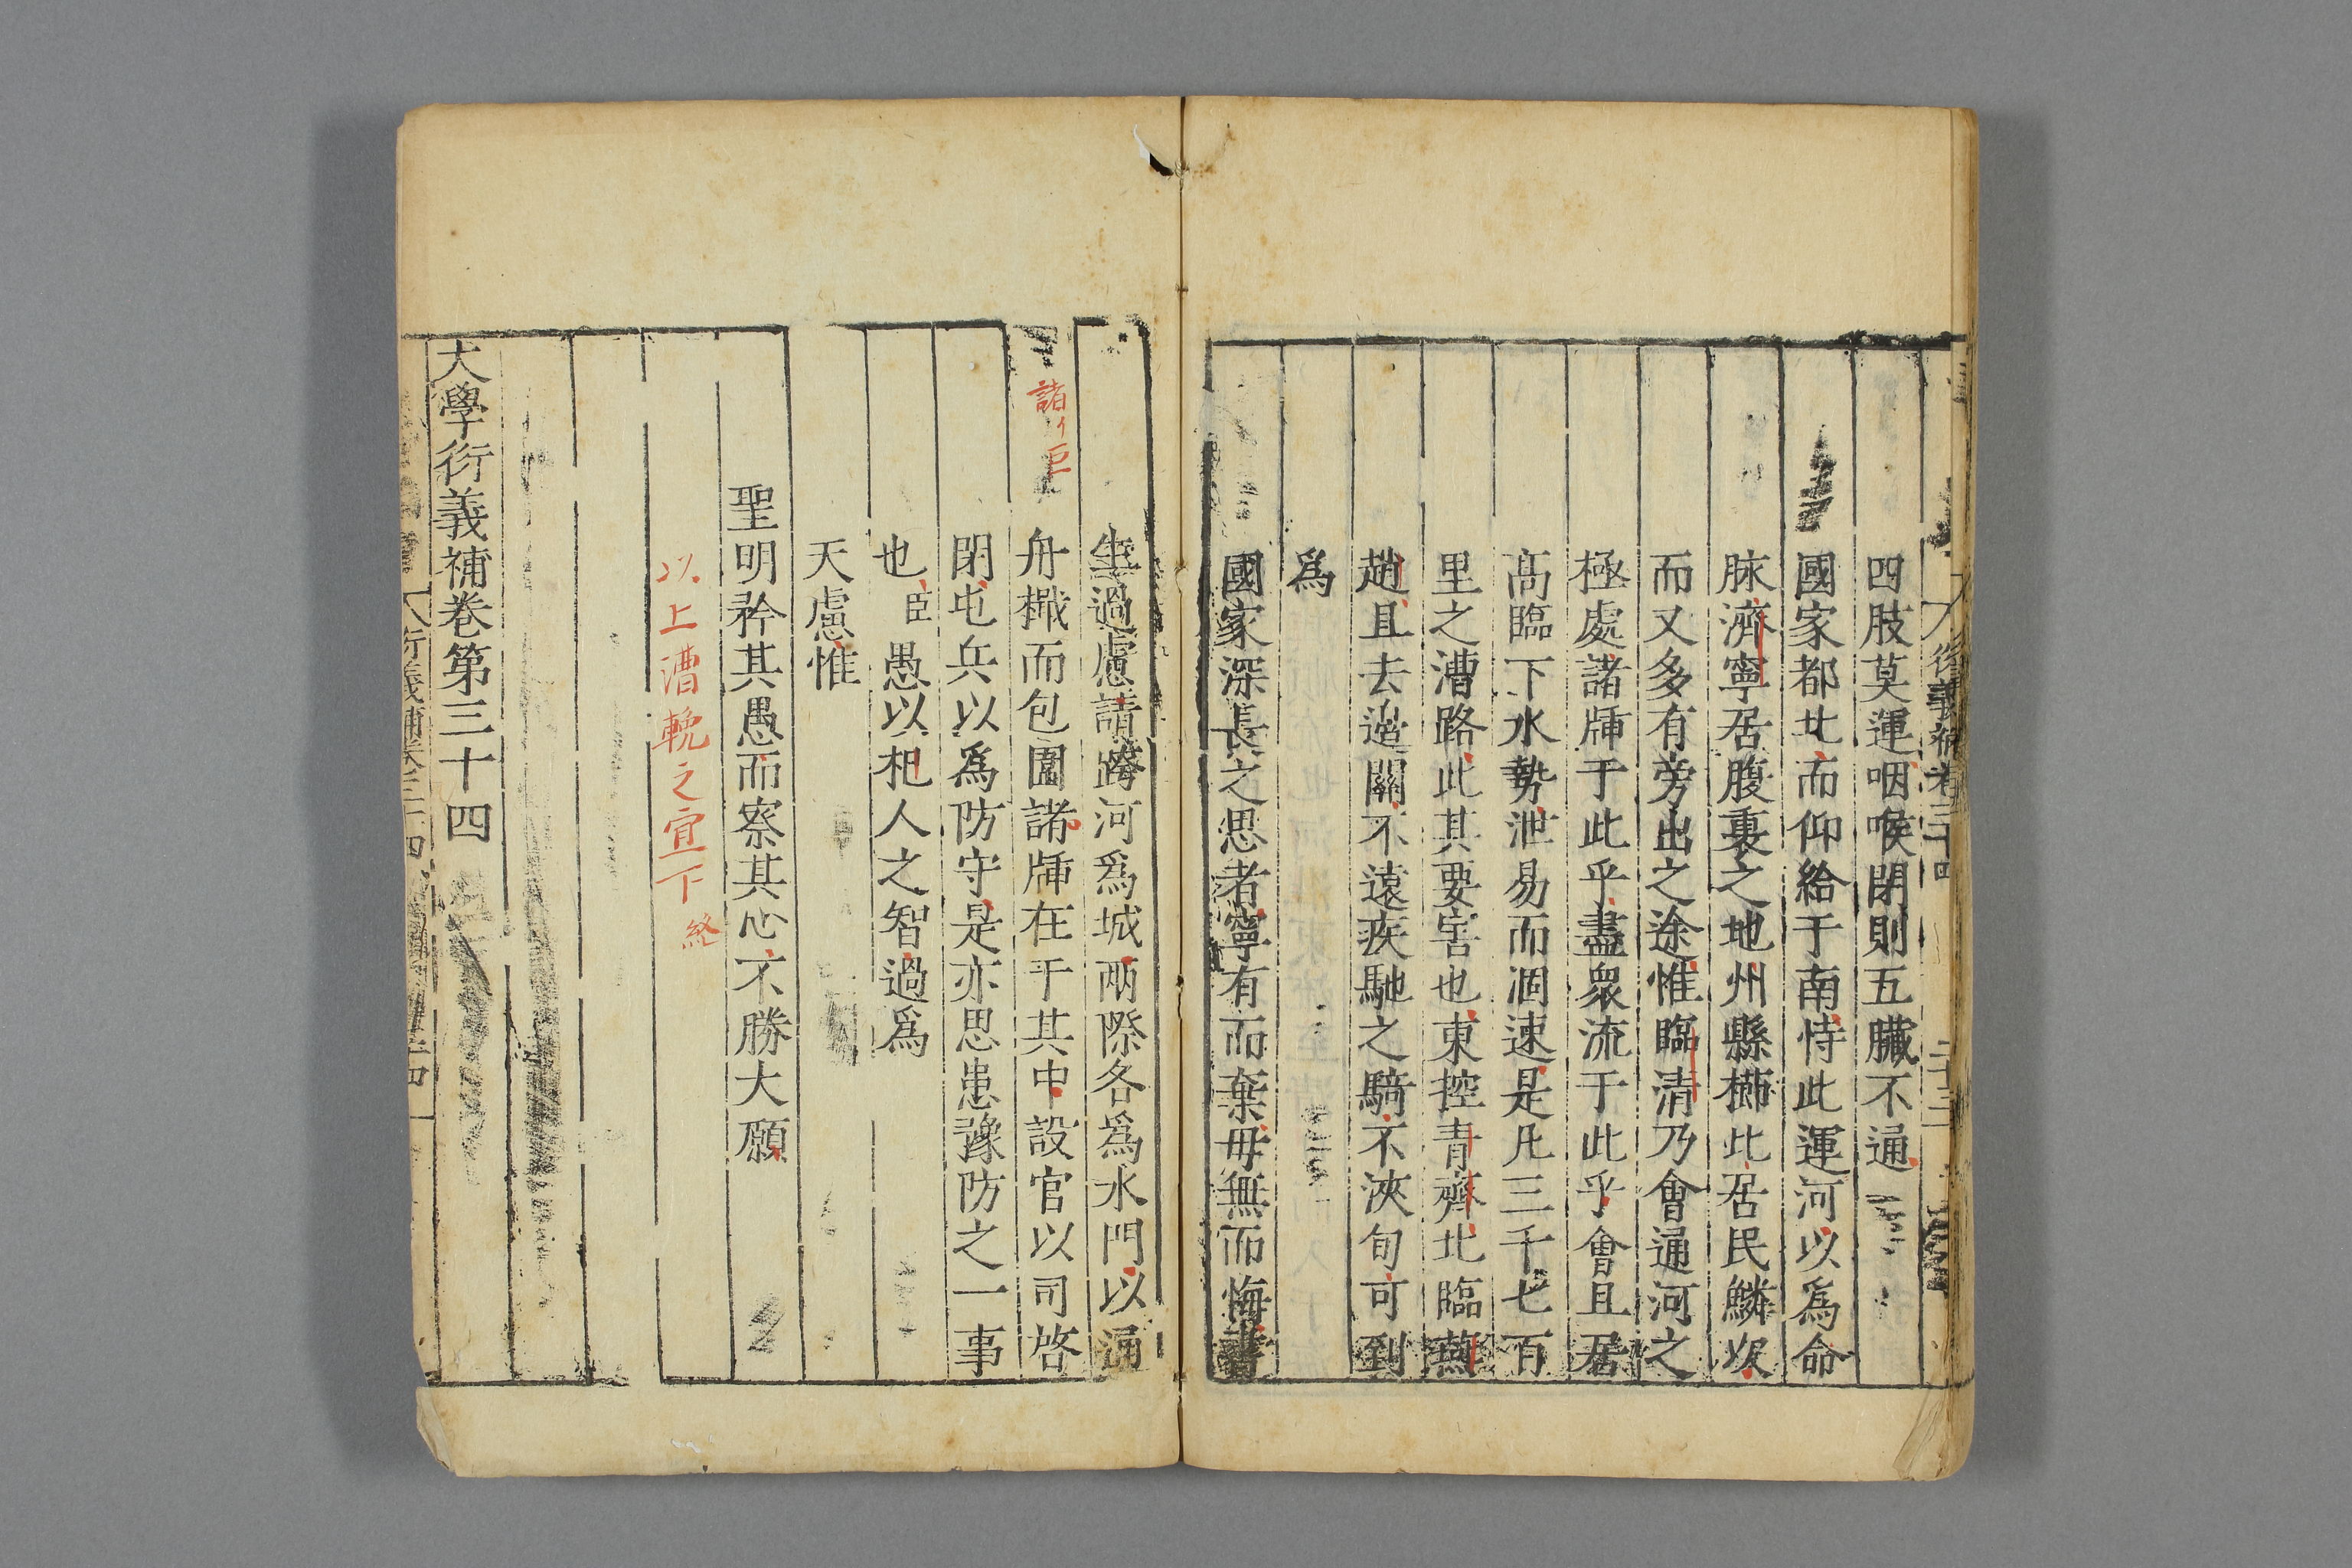 四肢莫運咽喉閉則五臟不通
國家都北而仰給于南恃此運河以爲命
脉濟寧居腹裏之地州縣櫛比居民鱗次
而又多有旁出之途惟臨清乃會通河之
極處諸牐于此乎盡衆流于此乎會且居
高臨下水勢泄易而涸速是凡三千七百
里之漕路此其要害也東控青齊北臨燕
趙且去邊關不遠疾馳之騎不浹旬可到
爲
國家深長之思者寧有而棄毋無而悔書
生過慮請跨河爲城兩際各爲水門以通
舟檝而包圍諸牐在于其中設官以司啓
閉屯兵以爲防守是亦思患豫防之一事
也臣愚以杞人之智過爲
天慮惟
聖明矜其愚而察其心不勝大願
以上漕輓之宜下 終
大學衍義補卷第三十四